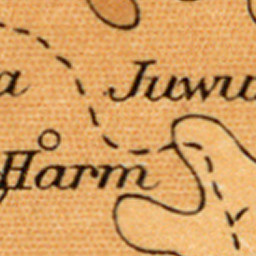 a Juwu
Harm